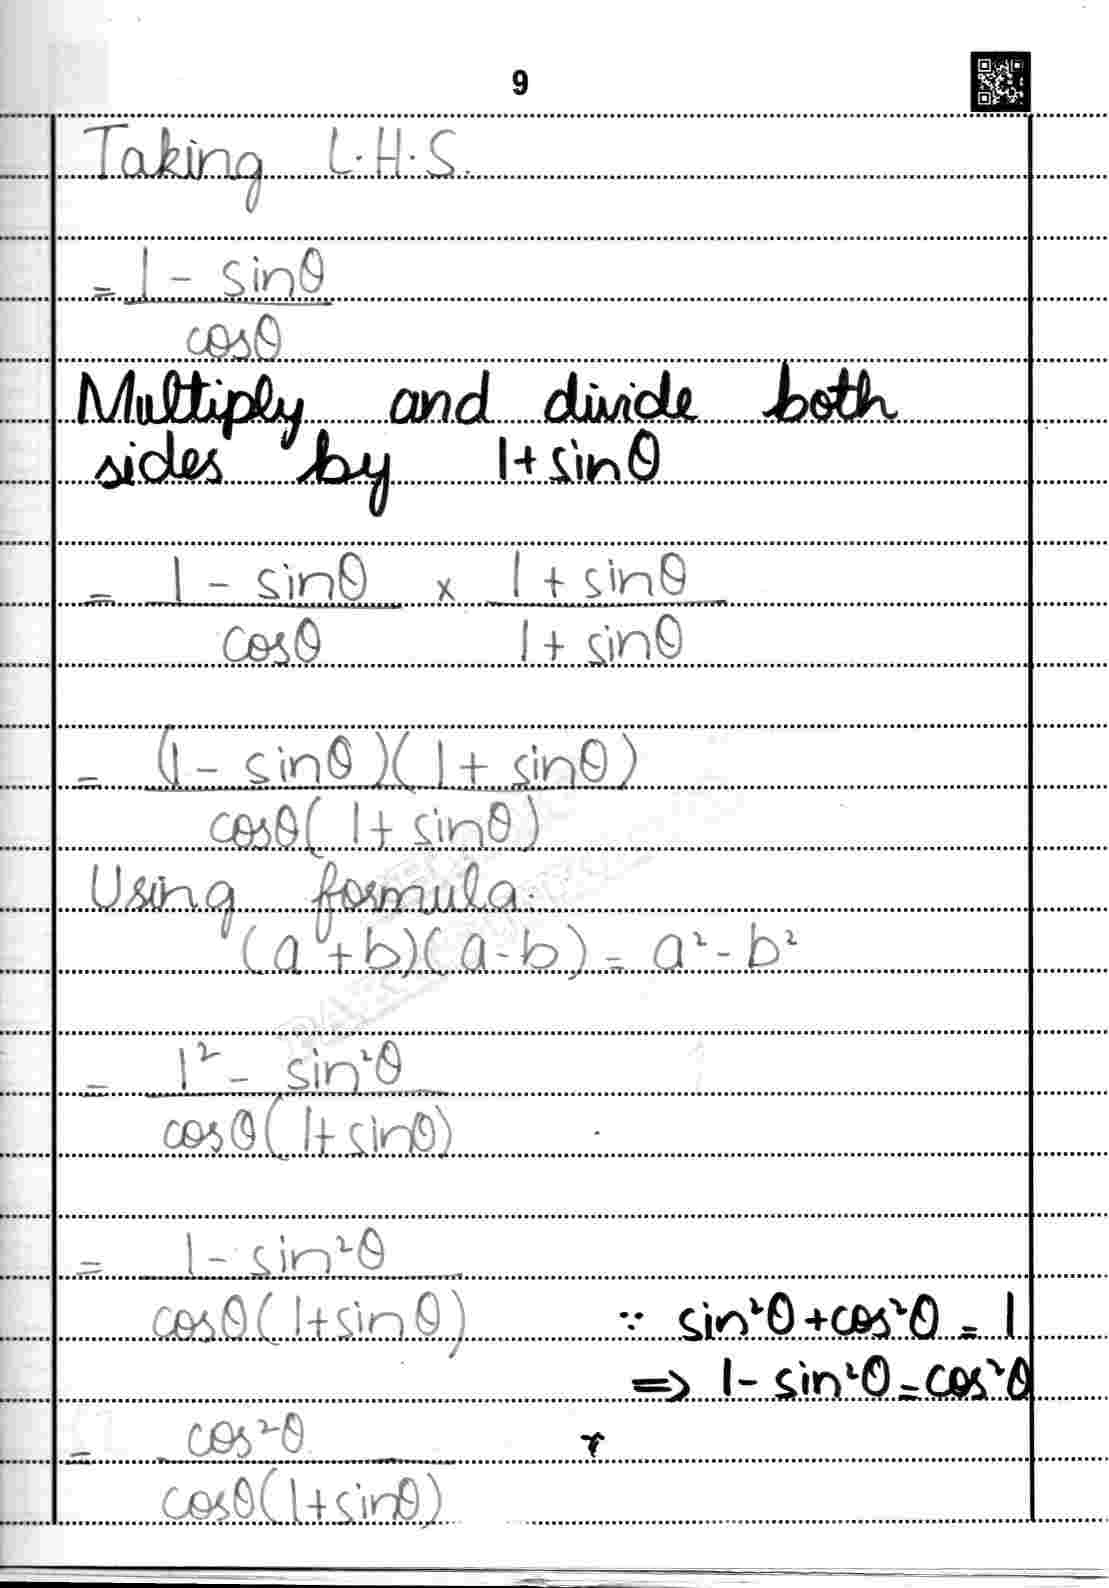 9
Taking L.H.S.
= 1 - sinθ
cosθ
Multiply and divide both
sides by 1+sinθ
= 1 - sinθ × 1 + sinθ
cosθ 1 + sinθ
= (1 - sinθ)(1 + sinθ)
cosθ(1 + sinθ)
Using formula.
(a + b)(a - b) = a² - b²
= 1² - sin²θ
cosθ(1+sinθ)
= 1 - sin²θ
cosθ(1+sinθ) ∵ sin²θ+cos²θ = 1
⇒ 1 - sin²θ = cos²θ
= cos²θ
cosθ(1+sinθ)